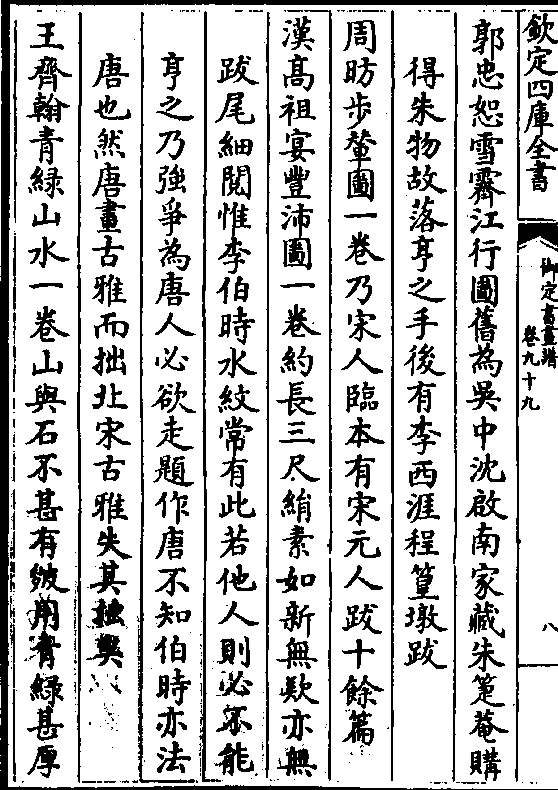 欽定四庫全書
御定書畫譜
卷九十九
八
郭忠恕雪霽江行圖舊為吳中沈啟南家藏朱箑菴購
得朱物故落亨之手後有李西涯程篁墩跋
周昉步輦圖一卷乃宋人臨本有宋元人跋十餘篇
漢高祖宴豐沛圖一卷約長三尺絹素如新無欵亦無
跋尾細閱惟李伯時水紋常有此若他人則必不能
亨之乃強爭為唐人必欲走題作唐不知伯時亦法
唐也然唐畫古雅而拙北宋古雅失其拙矣
王齊翰青綠山水一卷山與石不甚有皴用青綠甚厚